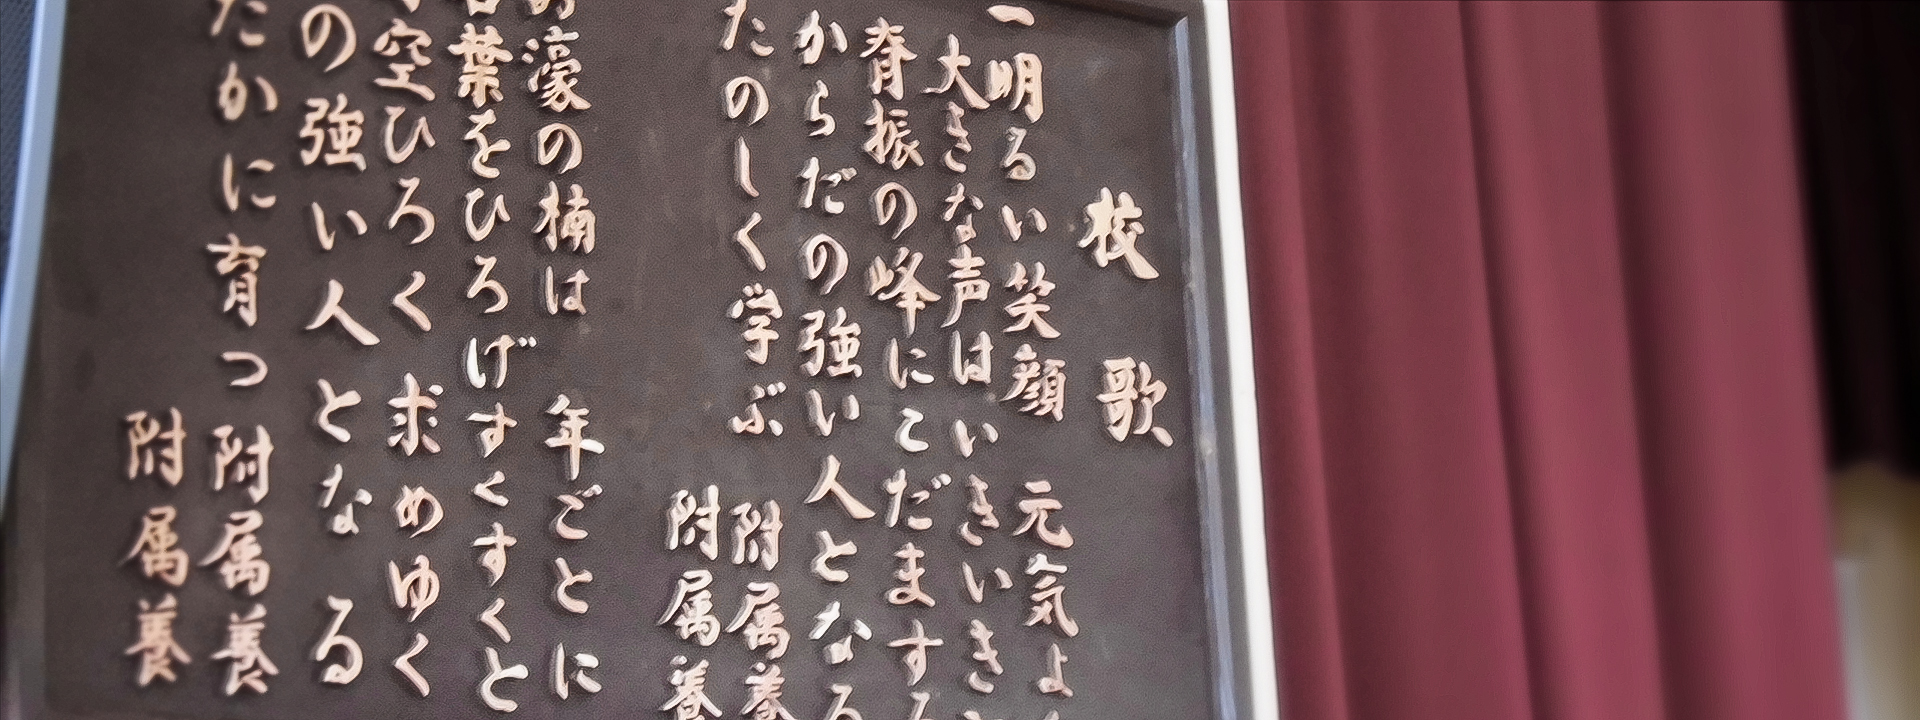 校歌
一 明るい笑顔 元気よ
大きな声は いきいき
脊振の峰に こだまする
からだの強い 人となる
たのしく学ぶ 附属養
附属養
濠の楠は 年ごとに
葉をひろげ すくすくと
空ひろく 求めゆく
の強い 人となる
たかに育つ 附属養
附属養